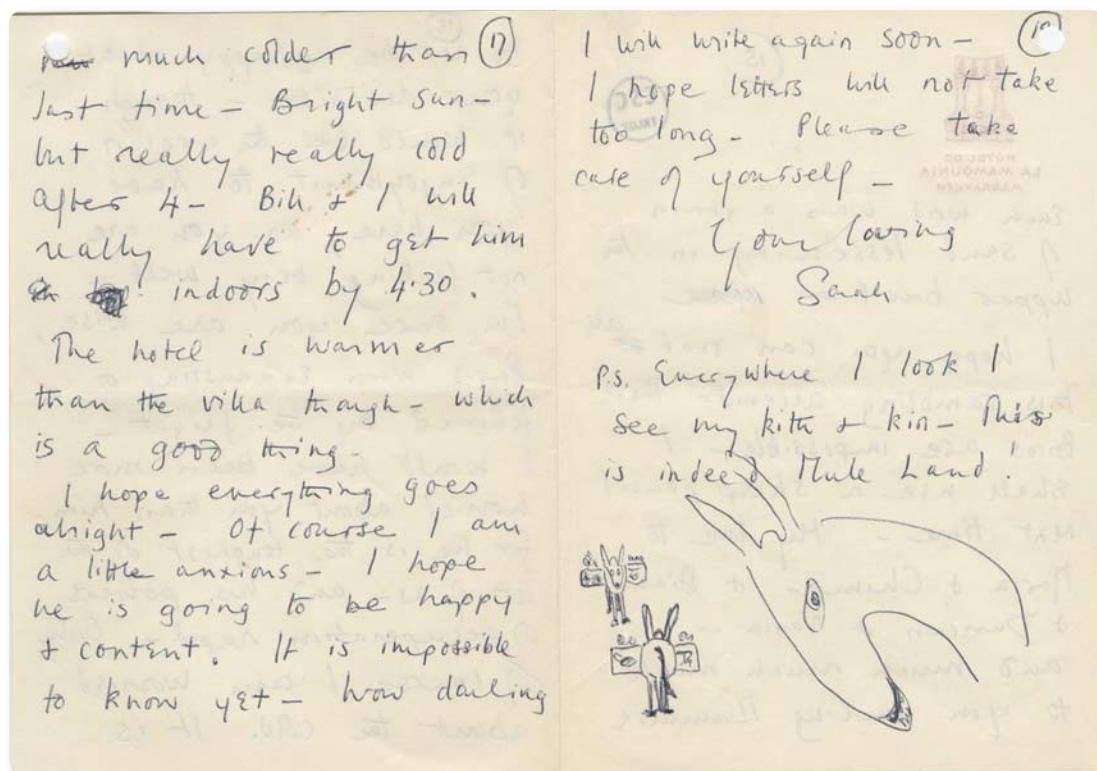 much colder than 17
last time – Bright sun –
but really really cold
after 4 – Bill & I will
really have to get him
indoors by 4.30.
The hotel is warmer
than the villa though – which
is a good thing.
I hope everything goes
alright – Of course I am
a little anxious – I hope
he is going to be happy
& content. It is impossible
to know yet – Now darling
I will write again soon –
I hope letters will not take
too long – Please take
care of yourself –
Your loving
Sarah
P.S. Everywhere I look I
see my kith & kin – This
is indeed Mule Land!